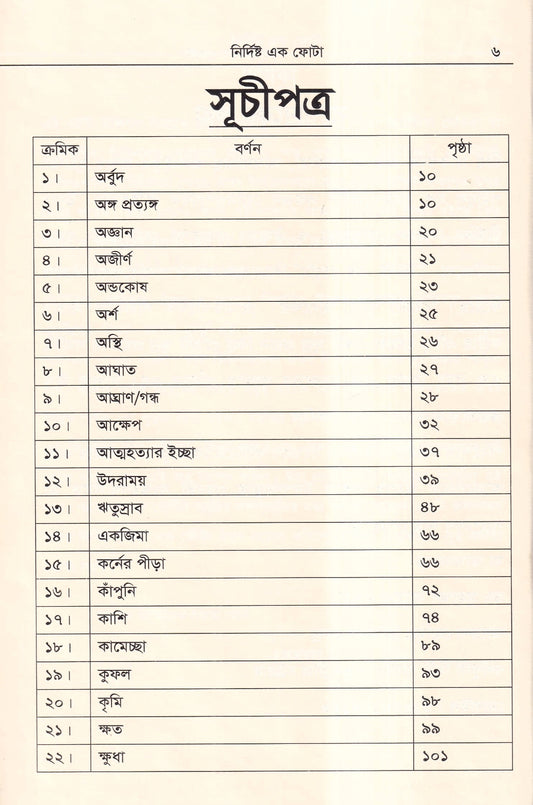 নির্দিষ্ট এক ফোটা ৬
সূচীপত্র
ক্রমিক বর্ণন পৃষ্ঠা
১। অর্বুদ ১০
২। অঙ্গ প্রত্যঙ্গ ১০
৩। অজ্ঞান ২০
৪। অজীর্ণ ২১
৫। অন্ডকোষ ২৩
৬। অর্শ ২৫
৭। অস্থি ২৬
৮। আঘাত ২৭
৯। আঘ্রাণ/গন্ধ ২৮
১০। আক্ষেপ ৩২
১১। আত্মহত্যার ইচ্ছা ৩৭
১২। উদরাময় ৩৯
১৩। ঋতুস্রাব ৪৮
১৪। একজিমা ৬৬
১৫। কর্নের পীড়া ৬৬
১৬। কাঁপুনি ৭২
১৭। কাশি ৭৪
১৮। কামেচ্ছা ৮৯
১৯। কুফল ৯৩
২০। কৃমি ৯৮
২১। ক্ষত ৯৯
২২। ক্ষুধা ১০১